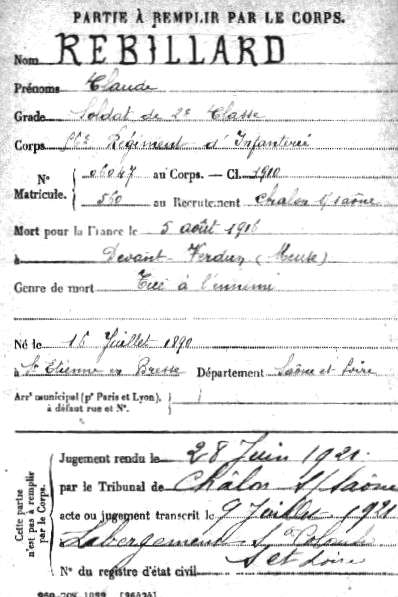 PARTIE À REMPLIR PAR LE CORPS.
Nom REBILLARD
Prénoms Claude
Grade Soldat de 2e Classe
Corps 56e Régiment d'Infanterie
N° Matricule. { 06047 au Corps. — Cl. 1910
560 au Recrutement Chalon s/saône
Mort pour la France le 5 août 1916
à Devant-Verdun (Meuse)
Genre de mort Tué à l'ennemi
Né le 16 Juillet 1890
à St Etienne en Bresse Département Saône et Loire
Arr¹ municipal (pʳ Paris et Lyon), à défaut rue et N°.
Cette partie n'est pas à remplir par le Corps.
Jugement rendu le 28 Juin 1921.
par le Tribunal de Châlon s/Saône
acte ou jugement transcrit le 9 Juillet 1921
Labergement Ste Colombe
S et Loire
N° du registre d'état civil